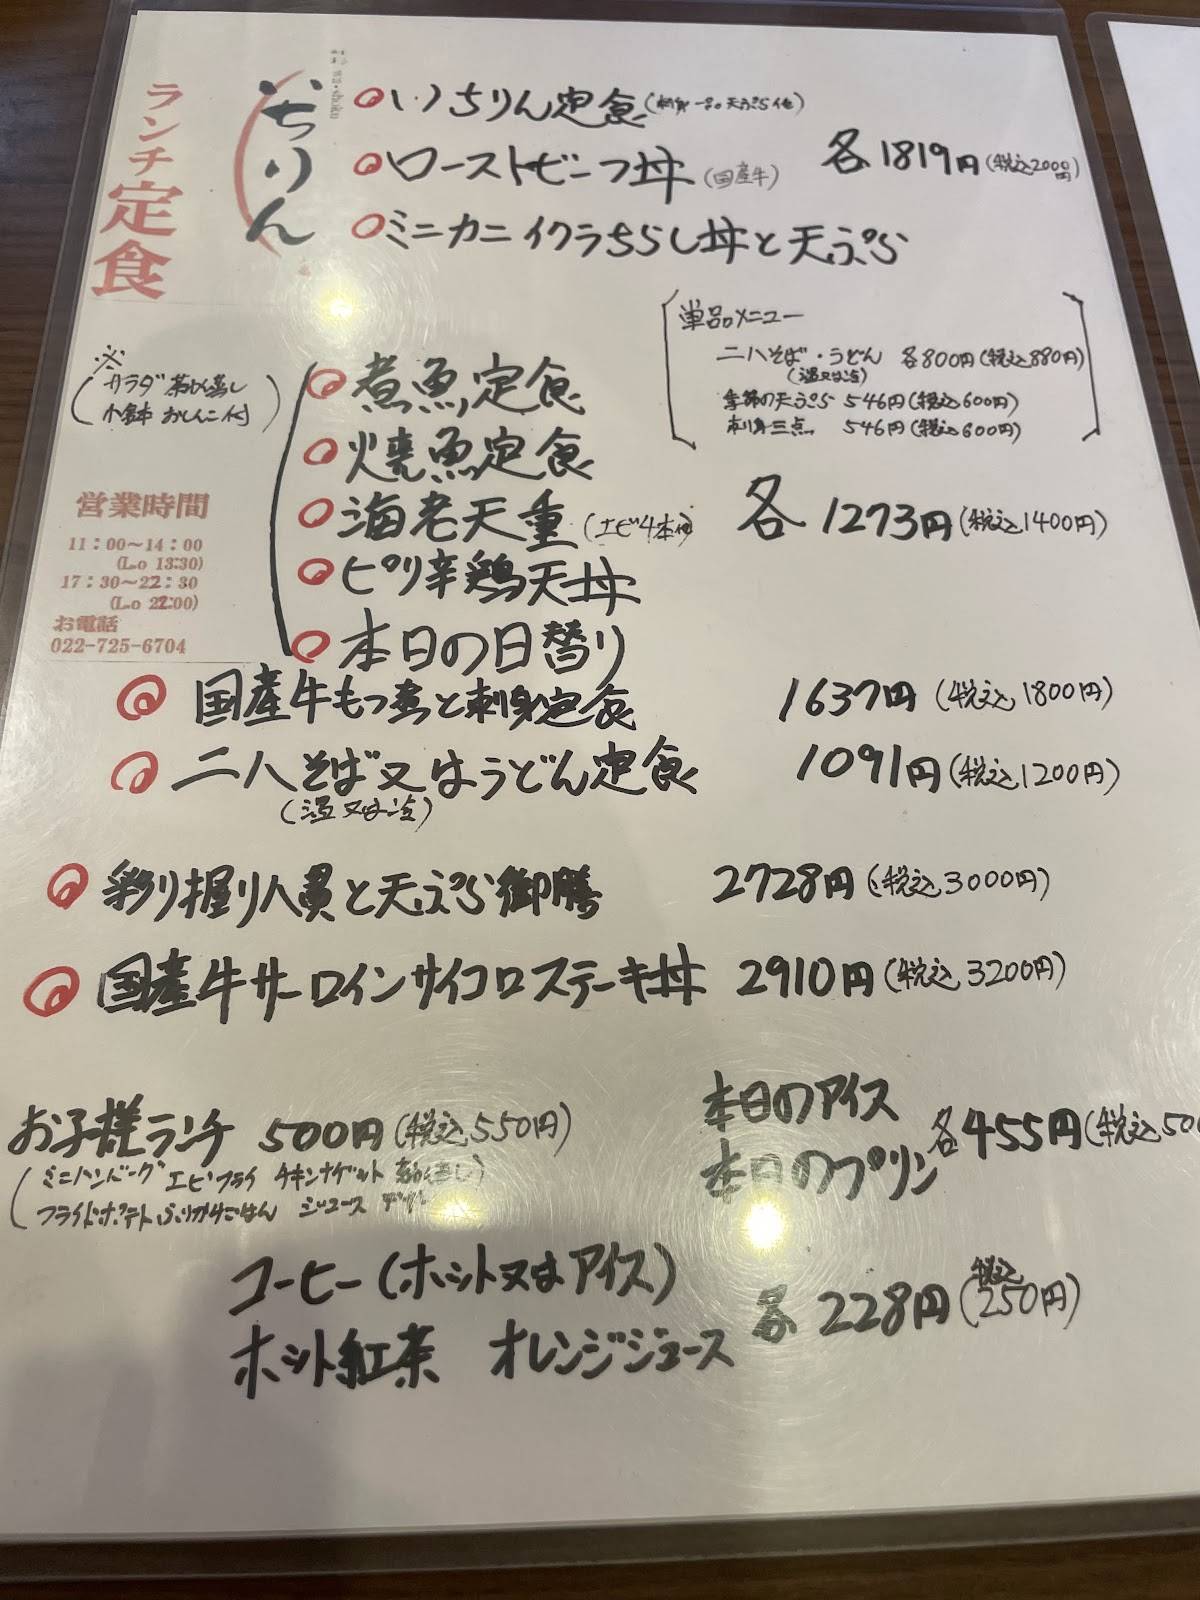 ランチ定食
いちりん
いちりん定食(刺身一品天ぷら他)
ローストビーフ丼(国産牛)
各1819円(税込2000円)
ミニカニイクラちらし丼と天ぷら
単品メニュー
二八そば・うどん 各800円(税込880円)
(温又は冷)
季節の天ぷら 546円(税込600円)
刺身三点 546円(税込600円)
※
(サラダ 茶わん蒸し
小鉢 おしんこ付)
煮魚定食
焼魚定食
海老天重(エビ4本他)
各1273円(税込1400円)
ピリ辛鶏天丼
本日の日替り
営業時間
11:00~14:00
(Lo 13:30)
17:30~22:30
(Lo 22:00)
お電話
022-725-6704
国産牛もつ煮と刺身定食 1637円(税込1800円)
二八そば又はうどん定食 1091円(税込1200円)
(温又は冷)
彩り握り八貫と天ぷら御膳 2728円(税込3000円)
国産牛サーロインサイコロステーキ丼 2910円(税込3200円)
お子様ランチ 500円(税込550円)
(ミニハンバーグ エビフライ チキンナゲット 茶わん蒸し)
フライドポテト ふりかけごはん ジュース
本日のアイス
本日のプリン
各455円(税込50
コーヒー(ホット又はアイス)
ホット紅茶 オレンジジュース
各228円(税込250円)